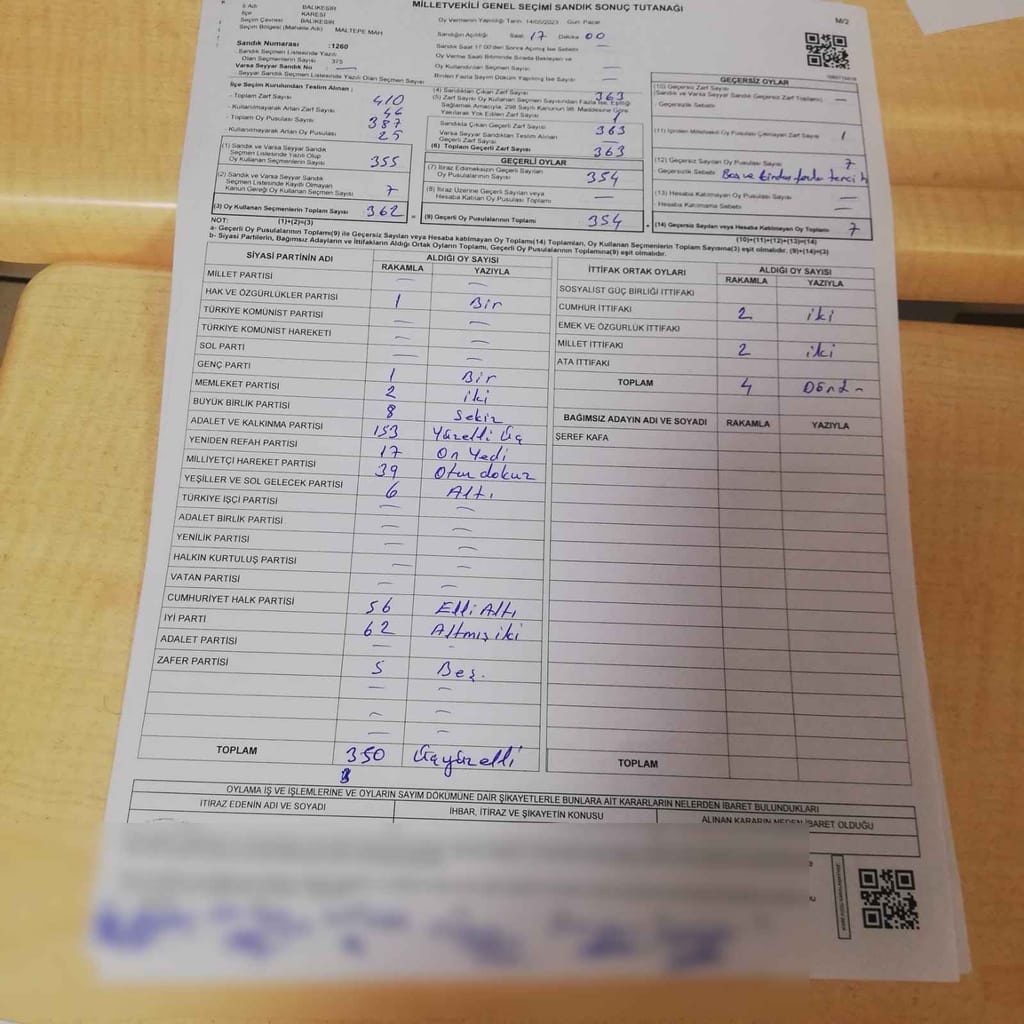 MİLLETVEKİLİ GENEL SEÇİMİ SANDIK SONUÇ TUTANAĞI
M/2
İl Adı BALIKESİR
İlçe KARESİ
Seçim Çevresi BALIKESİR
Seçim Bölgesi (Mahalle Adı) MALTEPE MAH
Oy Vermenin Yapıldığı Tarih 14/05/2023 Gün Pazar
Sandığın Açıldığı Saat 17 Dakika 00
Sandık Numarası : 1260
Sandık Seçmen Listesinde Yazılı
Olan Seçmenlerin Sayısı 375
Varsa Seyyar Sandık No —
Seyyar Sandık Seçmen Listesinde Yazılı Olan Seçmen Sayısı
Sandık Saat 17.00'den Sonra Açılmış İse Sebebi —
Oy Verme Saati Bitiminde Sırada Bekleyen ve
Oy Kullandırılan Seçmen Sayısı —
Birden Fazla Sayım Döküm Yapılmış İse Sayısı —
İlçe Seçim Kurulundan Teslim Alınan :
Toplam Zarf Sayısı 410
Kullanılmayarak Artan Zarf Sayısı
Toplam Oy Pusulası Sayısı 387
Kullanılmayarak Artan Oy Pusulası 25
(1) Sandık ve Varsa Seyyar Sandık
Seçmen Listesinde Yazılı Olup
Oy Kullanan Seçmenlerin Sayısı 355
(2) Sandık ve Varsa Seyyar Sandık
Seçmen Listesinde Kayıtlı Olmayan
Kanun Gereği Oy Kullanan Seçmen Sayısı 7
(3) Oy Kullanan Seçmenlerin Toplam Sayısı 362
(4) Sandıktan Çıkan Zarf Sayısı 363
(5) Zarf Sayısı Oy Kullanan Seçmen Sayısından Fazla İse, Eşitliği
Sağlamak Amacıyla, 298 Sayılı Kanunun 98. Maddesine Göre
Yakılarak Yok Edilen Zarf Sayısı 1
Sandıkta Çıkan Geçerli Zarf Sayısı 363
Varsa Seyyar Sandıktan Teslim Alınan
Geçerli Zarf Sayısı —
(6) Toplam Geçerli Zarf Sayısı 363
GEÇERLİ OYLAR
(7) İtiraz Edilmeksizin Geçerli Sayılan
Oy Pusulalarının Sayısı 354
(8) İtiraz Üzerine Geçerli Sayılan veya
Hesaba Katılan Oy Pusulası Toplamı —
(9) Geçerli Oy Pusulalarının Toplamı 354
GEÇERSİZ OYLAR
(10) Geçersiz Zarf Sayısı
(Sandık ve Varsa Seyyar Sandık Geçersiz Zarf Toplamı) —
Geçersizlik Sebebi
(11) İçinden Milletvekili Oy Pusulası Çıkmayan Zarf Sayısı 1
(12) Geçersiz Sayılan Oy Pusulası Sayısı 7
Geçersizlik Sebebi Boş ve birden fazla tercih
(13) Hesaba Katılmayan Oy Pusulası Sayısı —
Hesaba Katılmama Sebebi —
(14) Geçersiz Sayılan veya Hesaba Katılmayan Oy Toplamı 7
NOT: (1)+(2)=(3)
(10)+(11)+(12)+(13)=(14)
a- Geçerli Oy Pusulalarının Toplamı(9) ile Geçersiz Sayılan veya Hesaba katılmayan Oy Toplamı(14) Toplamları, Oy Kullanan Seçmenlerin Toplam Sayısına(3) eşit olmalıdır. (9)+(14)=(3)
b- Siyasi Partilerin, Bağımsız Adayların ve İttifakların Aldığı Ortak Oyların Toplamı, Geçerli Oy Pusulalarının Toplamına(9) eşit olmalıdır.
SİYASİ PARTİNİN ADI ALDIĞI OY SAYISI
RAKAMLA YAZIYLA
MİLLET PARTİSİ — —
HAK VE ÖZGÜRLÜKLER PARTİSİ 1 Bir
TÜRKİYE KOMÜNİST PARTİSİ — —
TÜRKİYE KOMÜNİST HAREKETİ — —
SOL PARTİ — —
GENÇ PARTİ 1 Bir
MEMLEKET PARTİSİ 2 iki
BÜYÜK BİRLİK PARTİSİ 8 Sekiz
ADALET VE KALKINMA PARTİSİ 153 Yüzelli Üç
YENİDEN REFAH PARTİSİ 17 On Yedi
MİLLİYETÇİ HAREKET PARTİSİ 39 Otuz dokuz
YEŞİLLER VE SOL GELECEK PARTİSİ 6 Altı
TÜRKİYE İŞÇİ PARTİSİ — —
ADALET BİRLİK PARTİSİ — —
YENİLİK PARTİSİ — —
HALKIN KURTULUŞ PARTİSİ — —
VATAN PARTİSİ — —
CUMHURİYET HALK PARTİSİ 56 Elli Altı
İYİ PARTİ 62 Altmış iki
ADALET PARTİSİ — -
ZAFER PARTİSİ 5 Beş.
— —
— —
— —
TOPLAM 350 Üçyüzelli
İTTİFAK ORTAK OYLARI ALDIĞI OY SAYISI
RAKAMLA YAZIYLA
SOSYALİST GÜÇ BİRLİĞİ İTTİFAKI
CUMHUR İTTİFAKI 2 iki
EMEK VE ÖZGÜRLÜK İTTİFAKI
MİLLET İTTİFAKI 2 iki
ATA İTTİFAKI
TOPLAM 4 Dört
BAĞIMSIZ ADAYIN ADI VE SOYADI RAKAMLA YAZIYLA
ŞEREF KAFA
TOPLAM
OYLAMA İŞ VE İŞLEMLERİNE VE OYLARIN SAYIM DÖKÜMÜNE DAİR ŞİKAYETLERLE BUNLARA AİT KARARLARIN NELERDEN İBARET BULUNDUKLARI
İTİRAZ EDENİN ADI VE SOYADI İHBAR, İTİRAZ VE ŞİKAYETİN KONUSU ALINAN KARARIN NEDEN İBARET OLDUĞU